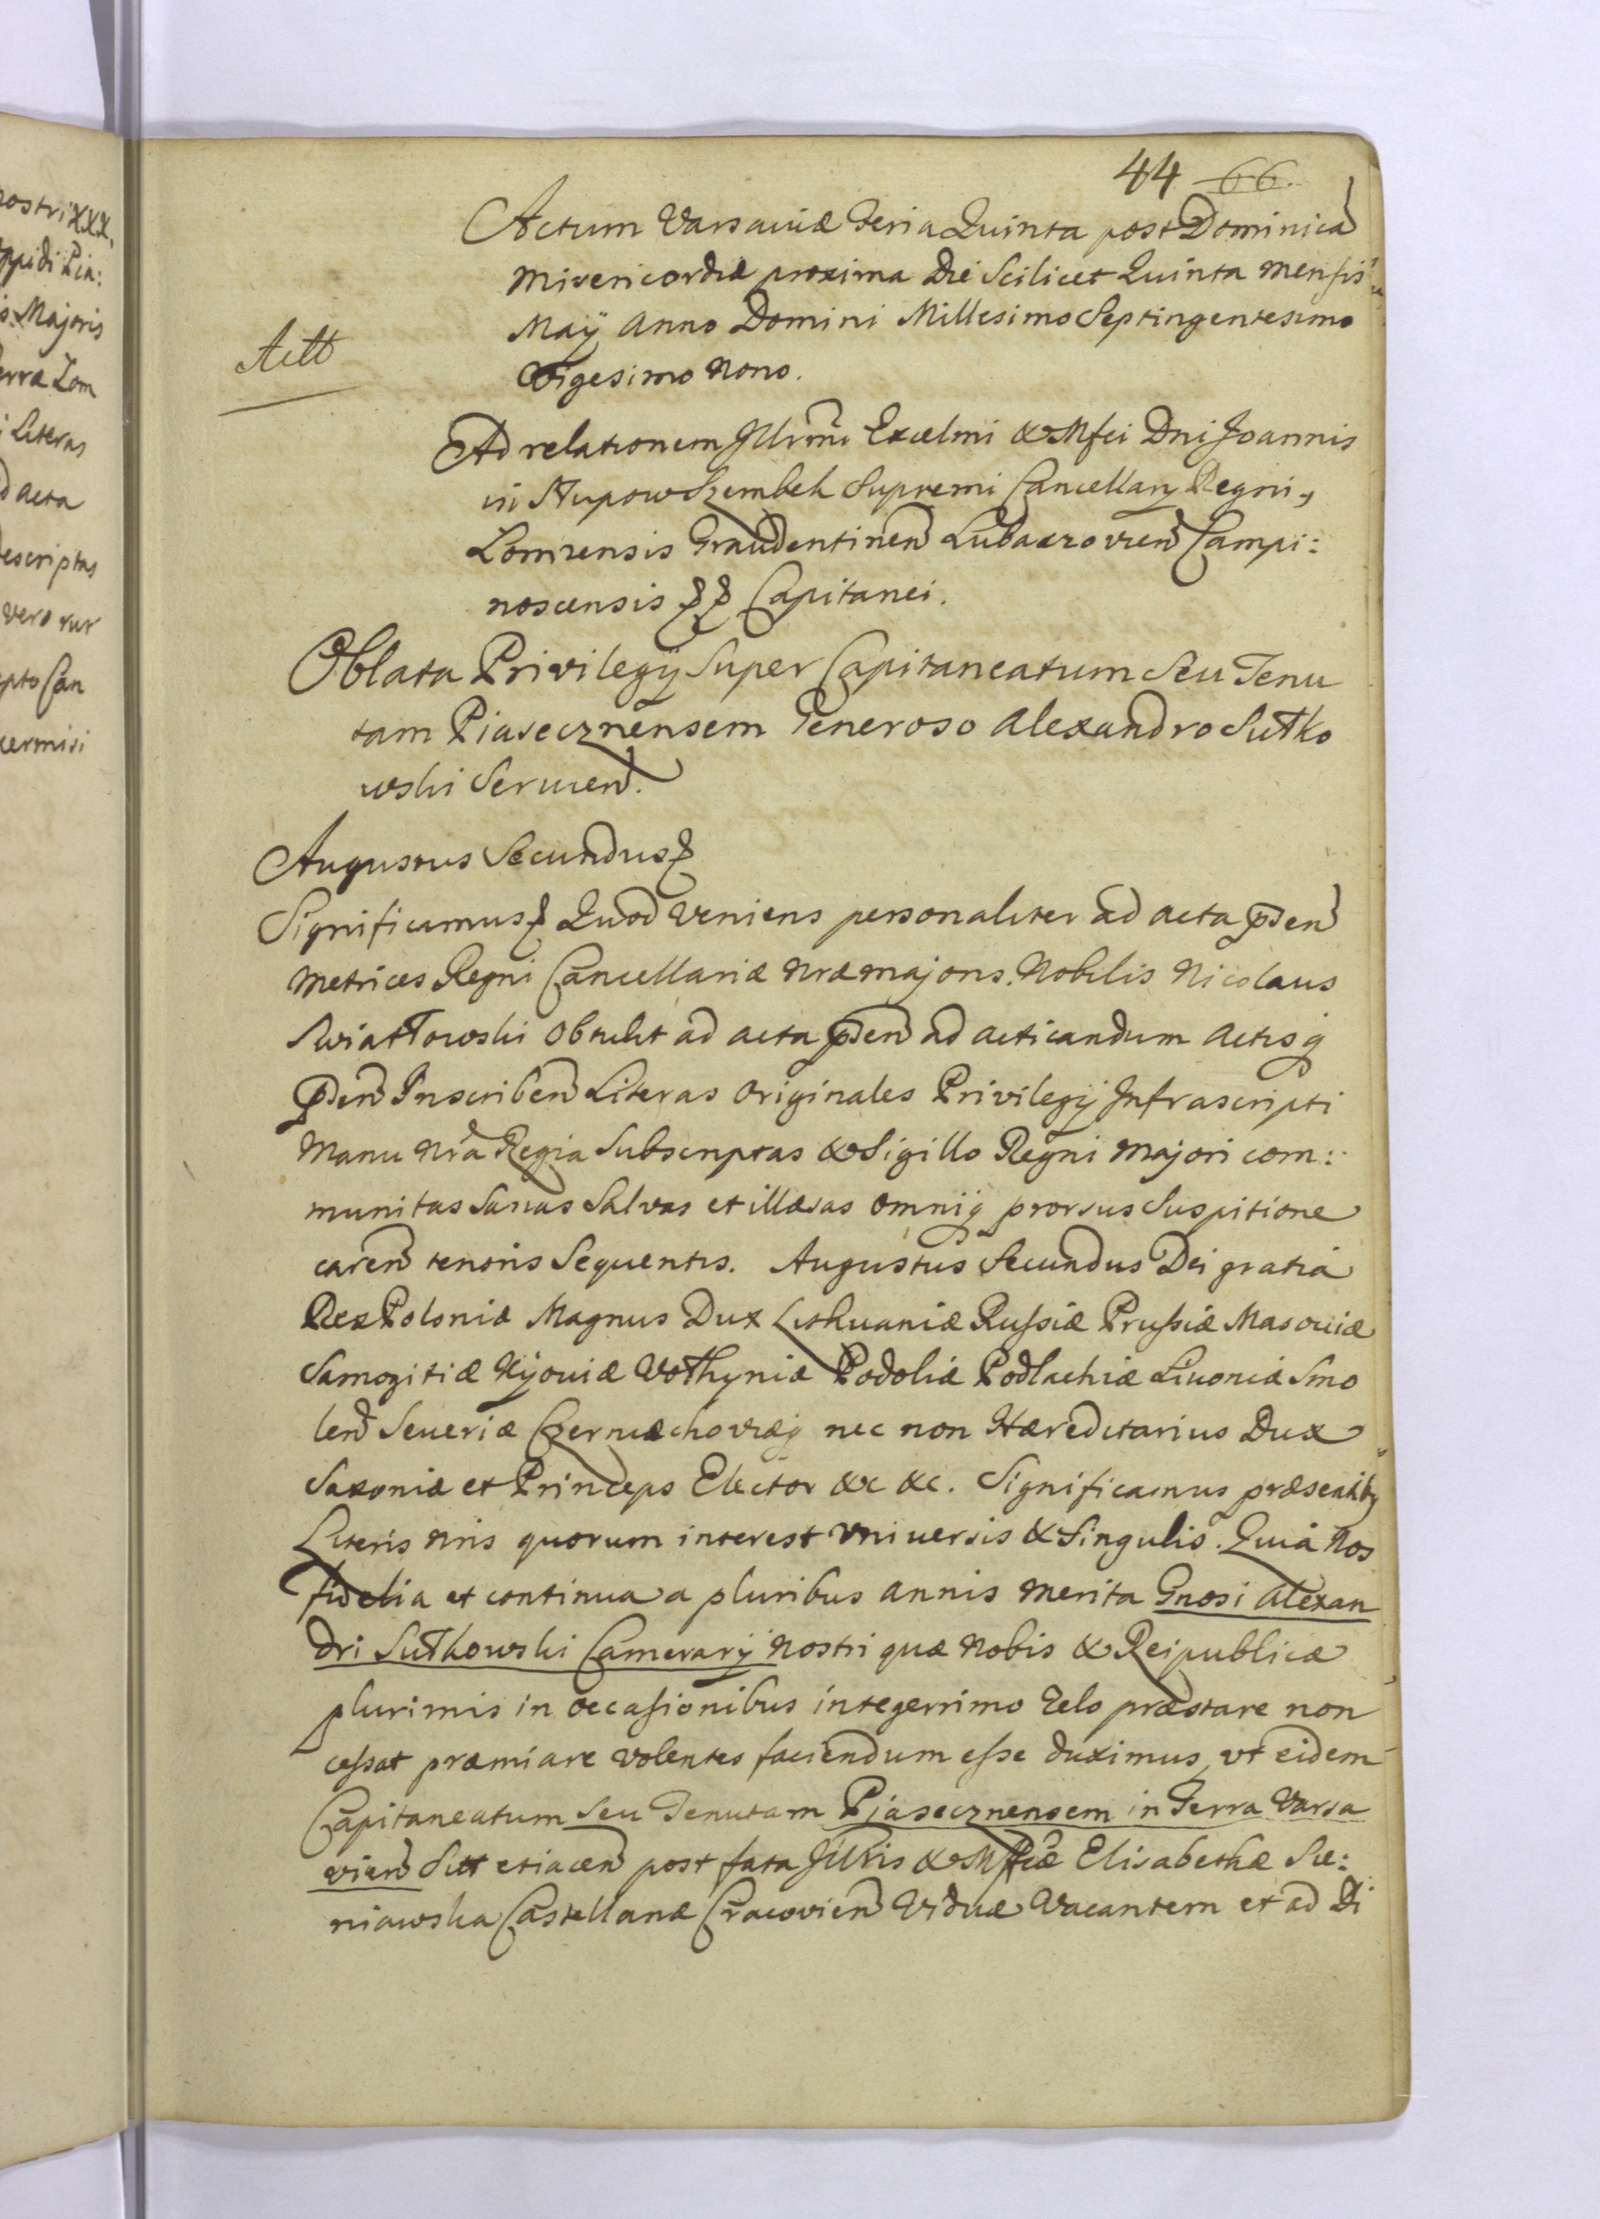 nostri XXX.
oppidi Pia:
is Majoris
Terræ Lom
i Literas
d acta
descriptas
vero rur
epto Can
permisi
44 66.
Actum Varsaviæ Feria Quinta post Dominicã
Misericordiæ proxima Die Scilicet Quinta Mensis
Maÿ Anno Domini Millesimo Septingentesimo
Vigesimo Nono.
Actt
Ad relationem Jllrmi Excelmi & Mfci Dni Joannis
in Słupow Szembek Supremi Cancellarÿ Regni,
Lomzensis Graudentinen Lubaczovien Campi:
noscensis Capitanei.
Oblata Privilegÿ Super Capitaneatum Seu Tenu
tam Piasecznensem Generoso Alexandro Sułko
wski Servien.
Augustus Secundus
Significamus Quod Veniens personaliter ad acta pden
Metrices Regni Cancellariæ Nræ majoris. Nobilis Nicolaus
Swiatłowski Obtulit ad acta pden ad acticandum Actisq
pden Inscriben Literas Originales Privilegÿ Jnfrascripti
Manu Nrã Regia Subscriptas & Sigillo Regni Majori com:
munitas Sanas Salvas et illæsas Omniq prorsus Suspitione
caren tenoris Sequentis. Augustus Secundus Dei gratia
Rex Poloniæ Magnus Dux Lithuaniæ Russiæ Prussiæ Masoviæ
Samogitiæ Kÿoviæ Vołhyniæ Podoliæ Podlachiæ Livoniæ Smo
len Severiæ Czerniæchoviæq nec non Hæreditarius Dux
Saxoniæ et Princeps Elector &c &c. Significamus præsentibq
Literis Nris quorum interest Universis & Singulis. Quia Nos
fidelia et continua a pluribus annis Merita Gnosi Alexan
dri Sułkowski Camerarÿ Nostri quæ Nobis & Reipublicæ
plurimis in occasionibus integerrimo Zelo præstare non
cessat præmiare Volentes faciendum esse duximus, ut eidem
Capitaneatum seu Tenutam Pjasecznensem in Terra Varsa
vien Sitt etiacen post fata Jllris & Mficæ Elisabethæ Sie:
niawska Castellanæ Cracovien Viduæ Vacantem et ad Di